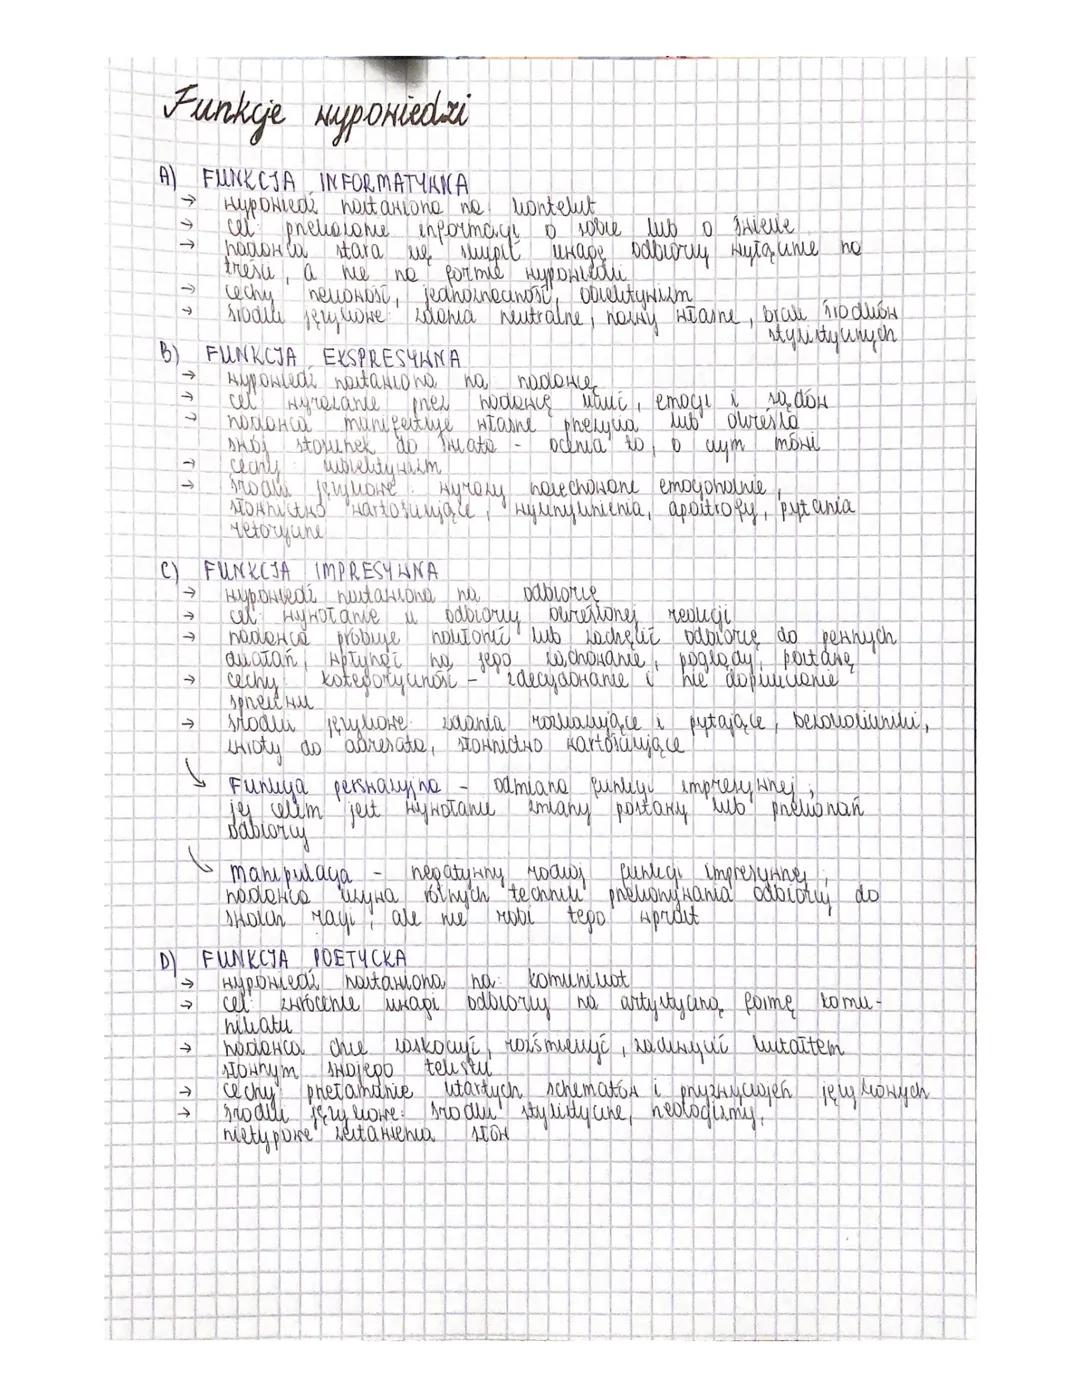 Funkcje wypowiedzi
A) FUNKCJA INFORMATYWNA
→ wypowiedź nastawiona na kontekst
→ cel: przekazanie informacji o sobie lub o świecie
→ nadawca stara się skupić uwagę odbiorcy wyłącznie na
treści, a nie na formie wypowiedzi
→ cechy: rzeczowość, jednoznaczność, obiektywizm
→ środki językowe: zdania neutralne, nazwy własne, brak środków
stylistycznych
B) FUNKCJA EKSPRESYWNA
→ wypowiedź nastawiona na nadawcę
→ cel: wyrażanie przez nadawcę uczuć, emocji i sądów
→ nadawca manifestuje własne przeżycia lub określa
swój stosunek do świata - ocenia to, o czym mówi
→ cechy: subiektywizm
→ środki językowe: wyrazy nacechowane emocjonalnie,
słownictwo wartościujące, wykrzyknienia, apostrofy, pytania
retoryczne
C) FUNKCJA IMPRESYWNA
→ wypowiedź nastawiona na odbiorcę
→ cel: wywołanie u odbiorcy określonej reakcji
→ nadawca próbuje nakłonić lub zachęcić odbiorcę do pewnych
działań, wpłynąć na jego zachowanie, poglądy, postawę
→ cechy: kategoryczność - zdecydowanie i nie dopuszczanie
sprzeciwu
→ środki językowe: zdania rozkazujące i pytające, bezokoliczniki,
zwroty do adresata, słownictwo wartościujące
↳ Funkcja perswazyjna - odmiana funkcji impresywnej,
jej celem jest wywołanie zmiany postawy lub przekonań
odbiorcy
↳ manipulacja - negatywny rodzaj funkcji impresywnej,
nadawca używa różnych technik przekonywania odbiorcy do
swoich racji, ale nie robi tego wprost
D) FUNKCJA POETYCKA
→ wypowiedź nastawiona na: komunikat
→ cel: zwrócenie uwagi odbiorcy na artystyczną formę komu-
nikatu
→ nadawca chce zaskoczyć, rozśmieszyć, zadziwić kształtem
słownym swojego tekstu
→ cechy: przełamanie utartych schematów i przyzwyczajeń językowych
→ środki językowe: środki stylistyczne, neologizmy,
nietypowe zestawienia słów